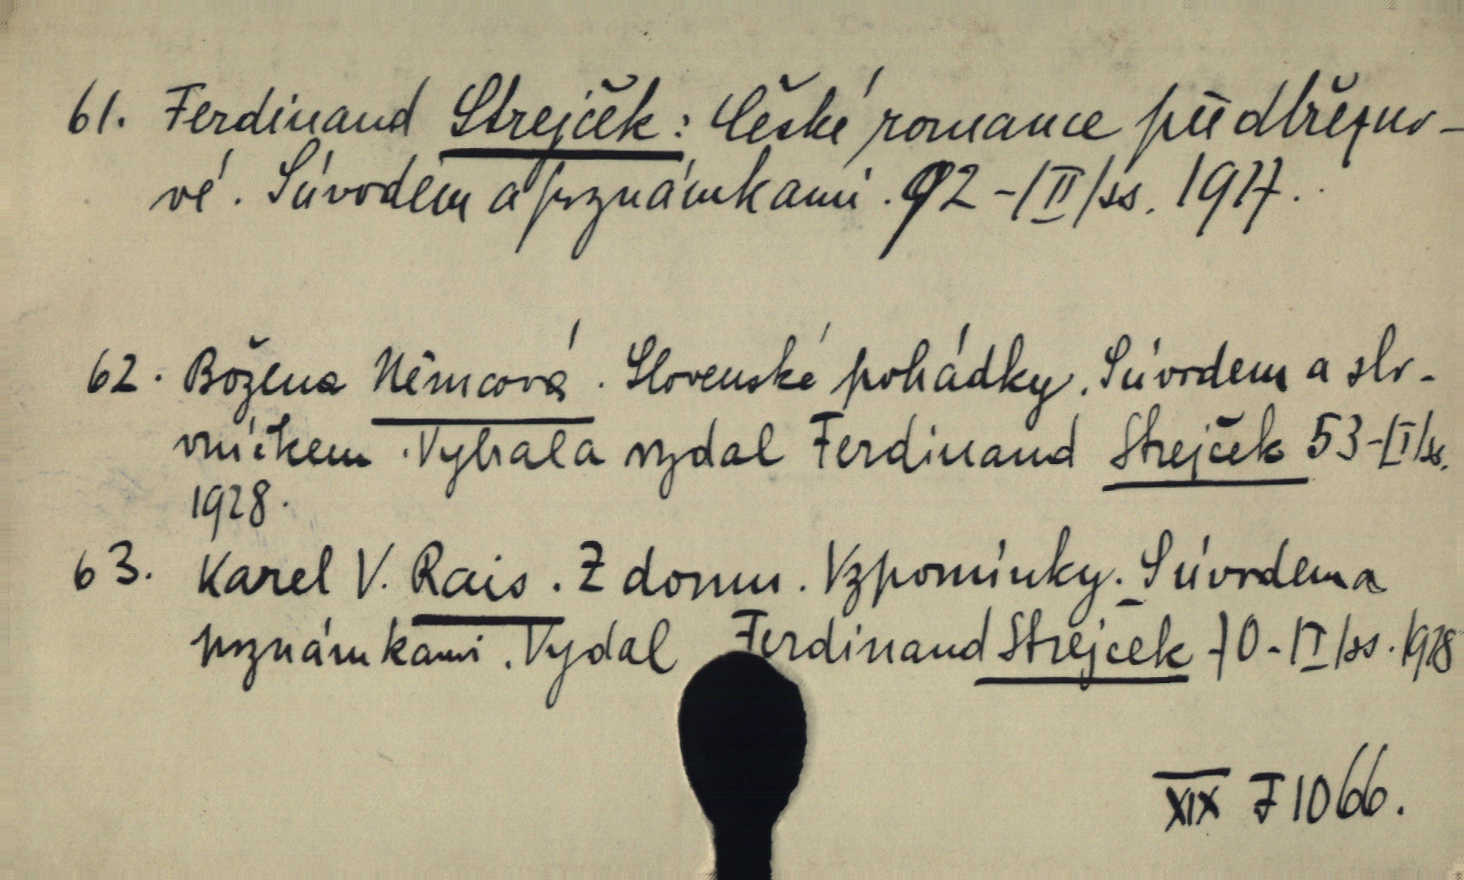 61. Ferdinand Strejček: České romance předbřezno-
vé. S úvodem a poznámkami. 92 -/II/ ss. 1917.
62. Božena Němcová. Slovenské pohádky. S úvodem a slo-
vníčkem. Vybral a vydal Ferdinand Strejček 53-/I/ ss.
1928.
63. Karel V. Rais. Z domu. Vzpomínky. S úvodem a
poznámkami. Vydal Ferdinand Strejček 70-/I/ ss. 1928
XIX J 1066.